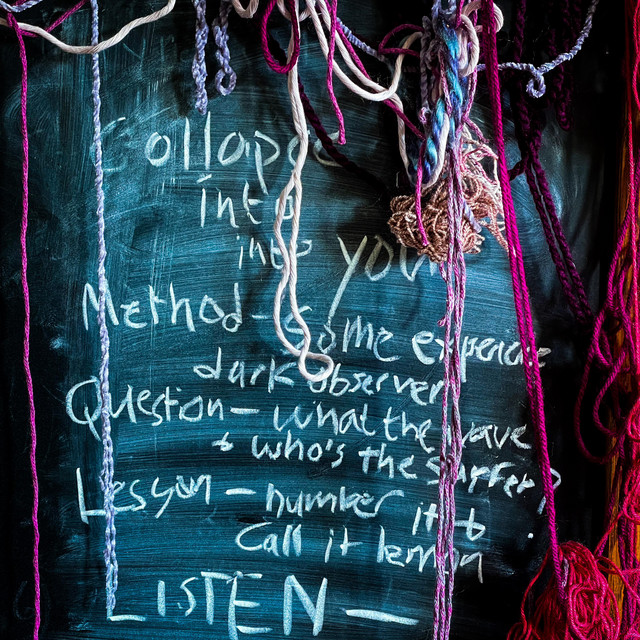 Collapse
into
into your
Method - some experience
dark observer
Question - what the wave
+ who's the surfer?
Lesson - number it 6
Call it lemon
LISTEN —